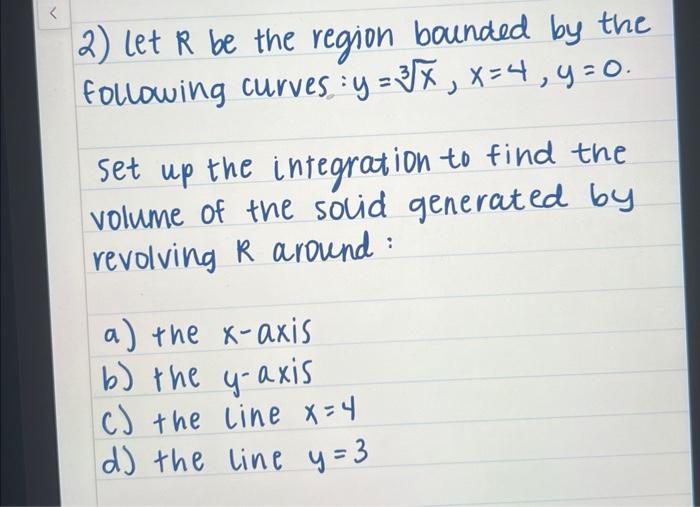 2) Let R be the region bounded by the
following curves: y = ∛x, x=4, y=0.
Set up the integration to find the
volume of the solid generated by
revolving R around:
a) the x-axis
b) the y-axis
c) the line x=4
d) the line y=3